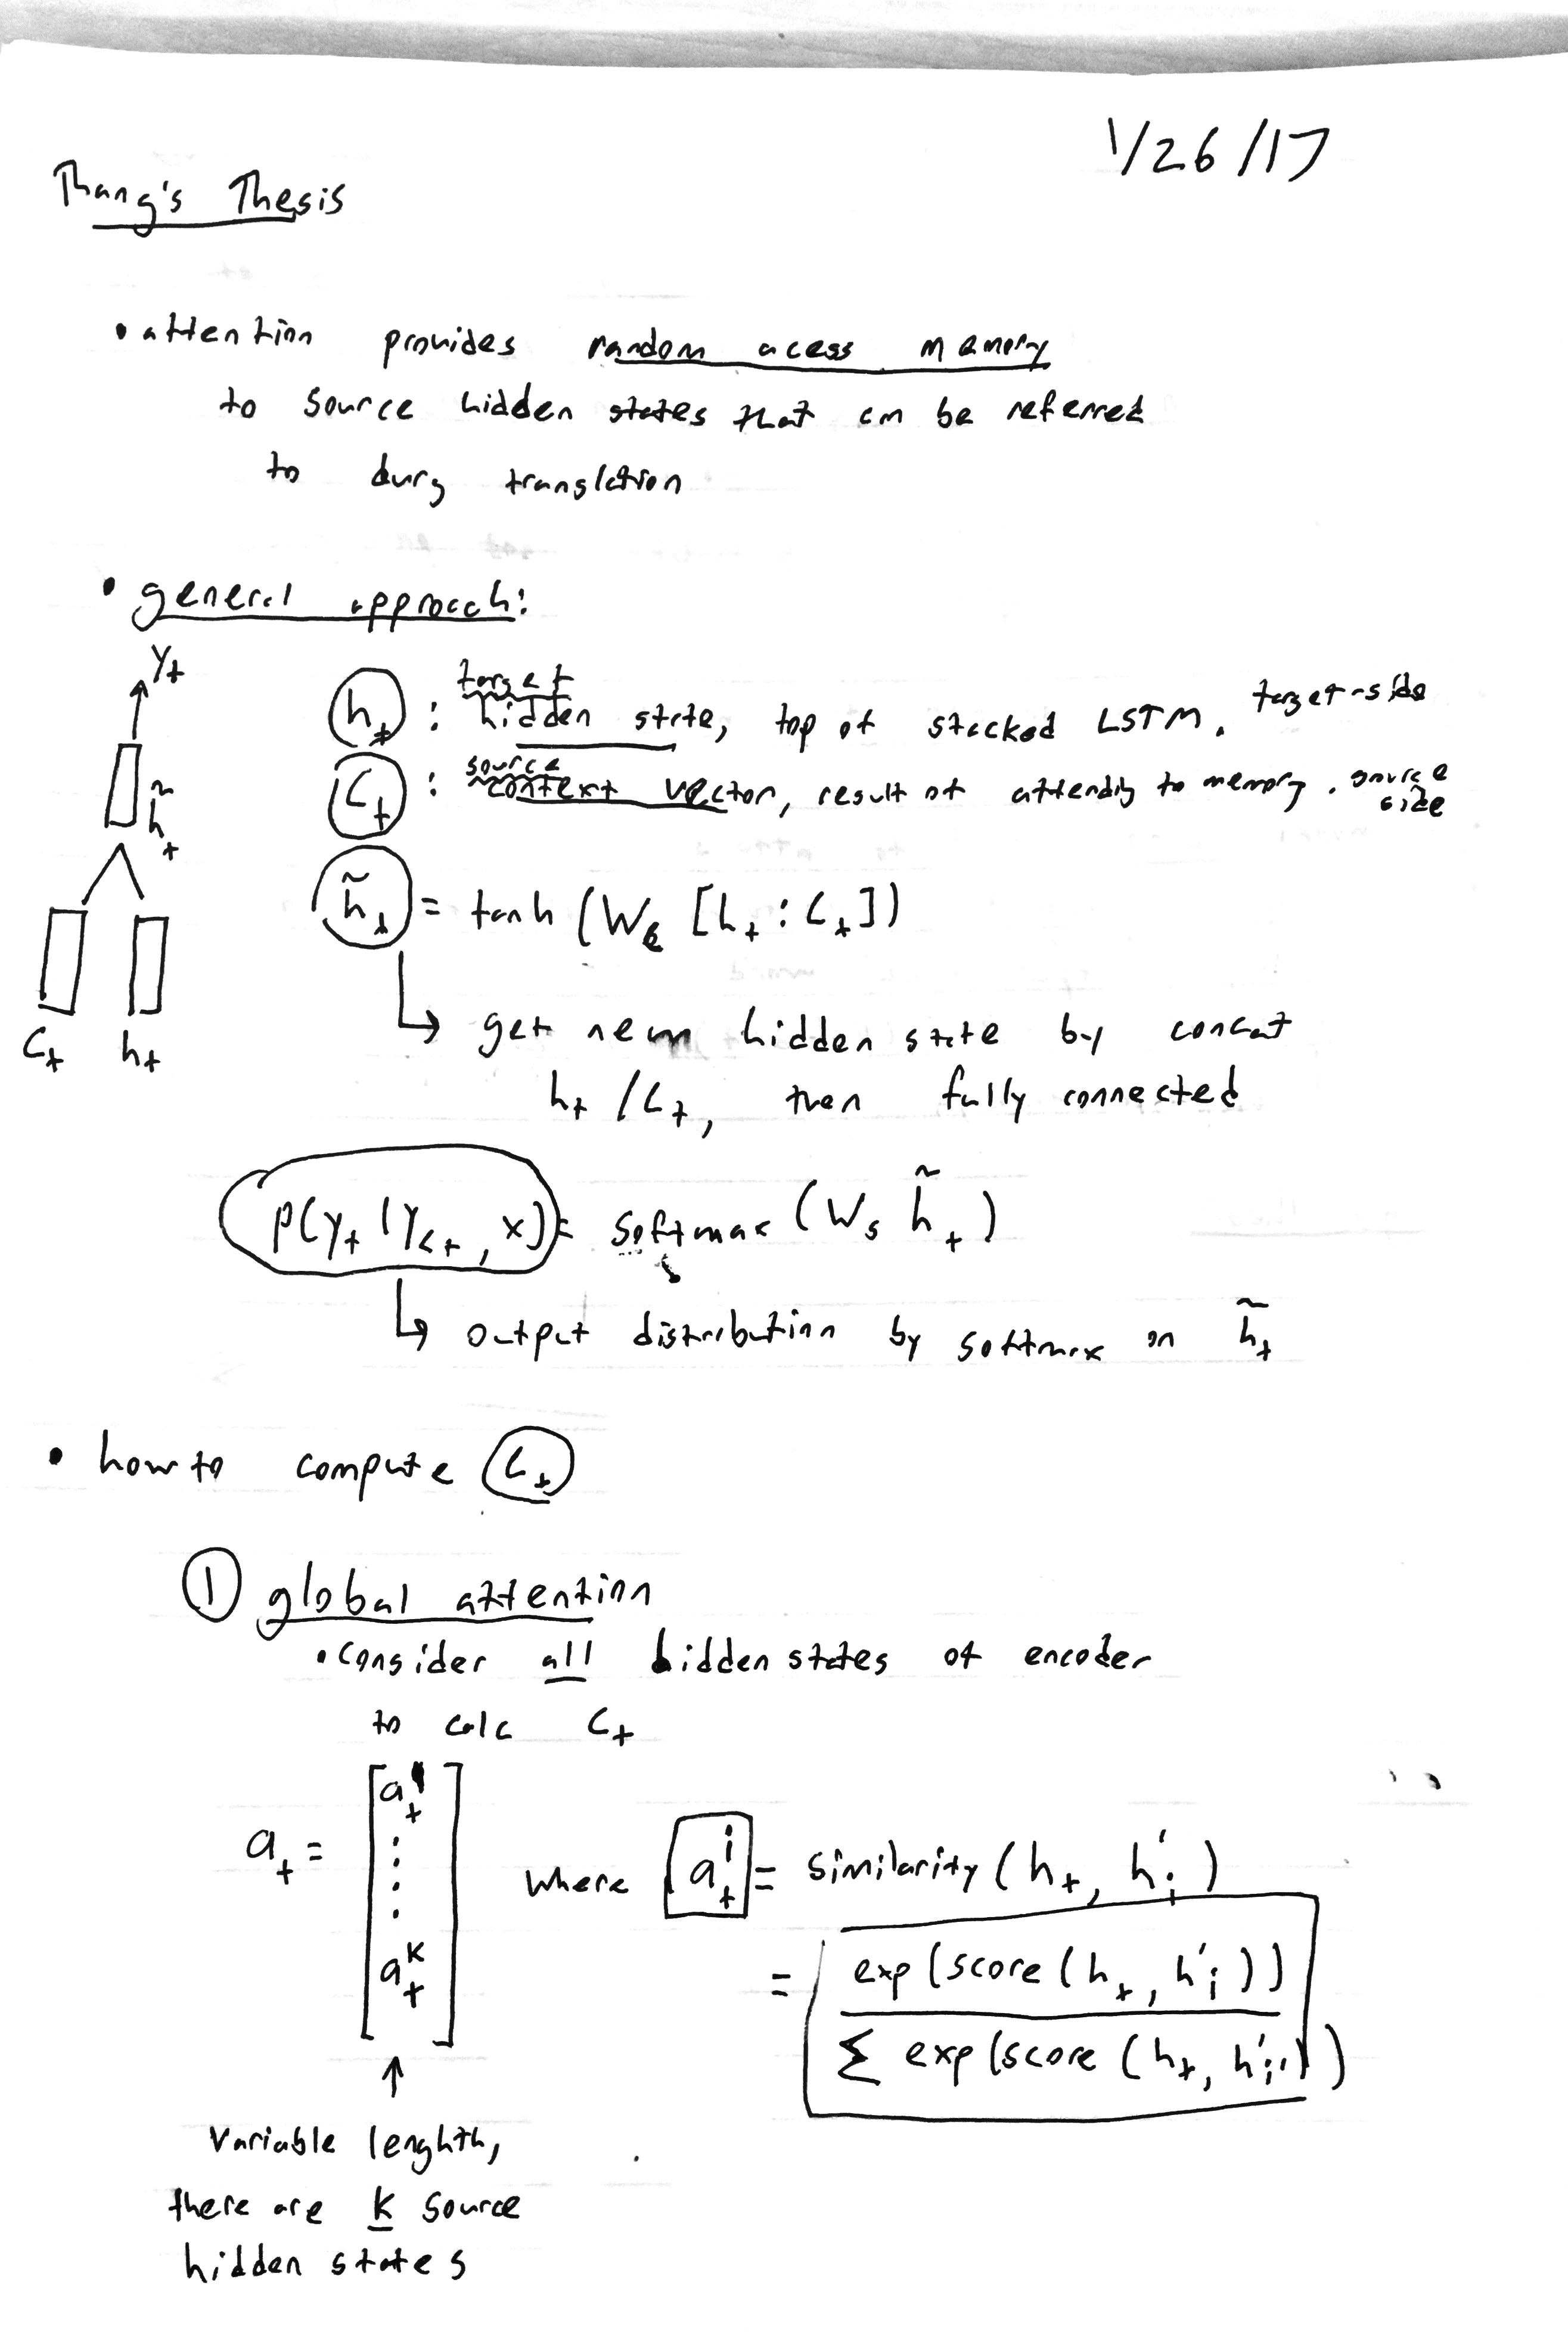 1/26/17
Thang's Thesis
• attention provides random acess memory
to source hidden states that can be referred
to durg translation
• general approach:
yₜ
h̃ₜ
cₜ hₜ
target
hₜ : hidden state, top of stacked LSTM. target-side
source
cₜ : context vector, result of attendig to memory. source side
h̃ₜ = tanh (W꜀ [hₜ : cₜ])
↳ get new hidden state by concat
hₜ / cₜ, then fully connected
p(yₜ | y<ₜ, x) = softmax (Wₛ h̃ₜ)
↳ output distribution by softmax on h̃ₜ
• how to compute cₜ
① global attention
• consider all hidden states of encoder
to calc cₜ
aₜ = [aₜ¹ ⋮ aₜᴷ] where aₜⁱ = similarity (hₜ, h'ᵢ)
= exp (score (hₜ, h'ᵢ)) / Σ exp (score (hₜ, h'ᵢ'))
↑
variable lenghth,
there are K source
hidden states